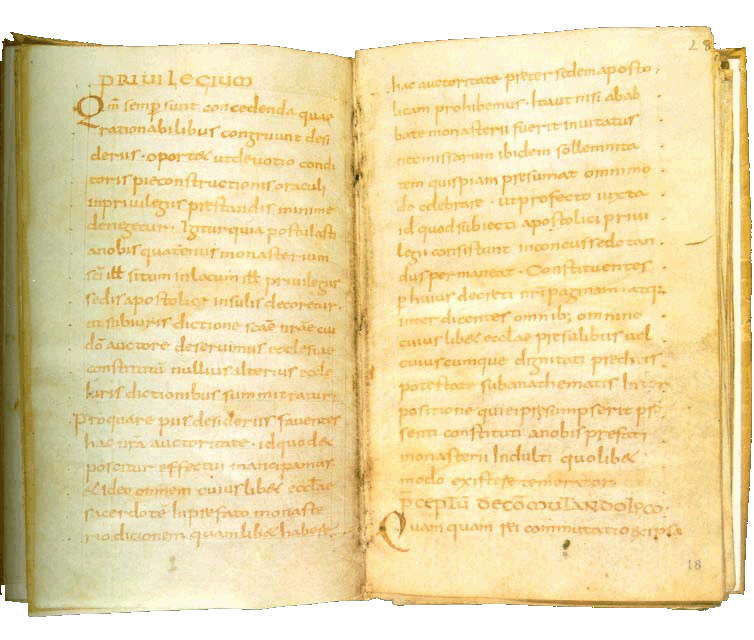 PRIUILEGIUM
Qm̄ semp̄ sunt concedenda quae
rationabilibus congruunt desi
deriis · oportet ut deuotio condi
toris pie constructionis oraculi
in priuilegiis prestandis minime
denegetur · Igitur quia postulasti
a nobis quatenus monasterium
sc̄i ill̄ situm in locum ill̄ priuilegiis
sedis apostolice insulis decoretur ·
ut sub iuris dictione sc̄ae nr̄ae cui
dō auctore deseruimus ecclesiae
constitutū nullius alterius eccle
iuris dictionibus summitatur
Pro qua re piis desideriis fauentes
hac nr̄a auctoritate · id quod ex
poscitur effectui mancipamus
et ideo omnem cuius libet ecclae
sacerdotē In prefato monaste
rio dicionem quam libet habere
28
hac auctoritate preter sedem aposto
licam prohibemus · Ita ut nisi ab ab
bate monasterii fuerit inuitatus
nec missarum ibidem sollemnita
tem quispiam presumat omnimo
do celebrare · ut profecto iuxta
id quod subiecti apostolici priui
legii consistunt inconcusse dotan
dus permaneat · Constituentes
p huius decreti nr̄i paginam · atq;
inter dicentes omnib; omnino
cuius libet ecclae presulibus uel
cuiuscumque dignitati preditis
potestate sub anathematis Inter
positione qui ei presumpserit pre
senti constituti a nobis prefati
monasterii Indulti quolibet
modo existere temerator
p̄ceptū de cōmutando loco ·
Quam quam rei commutatio
18